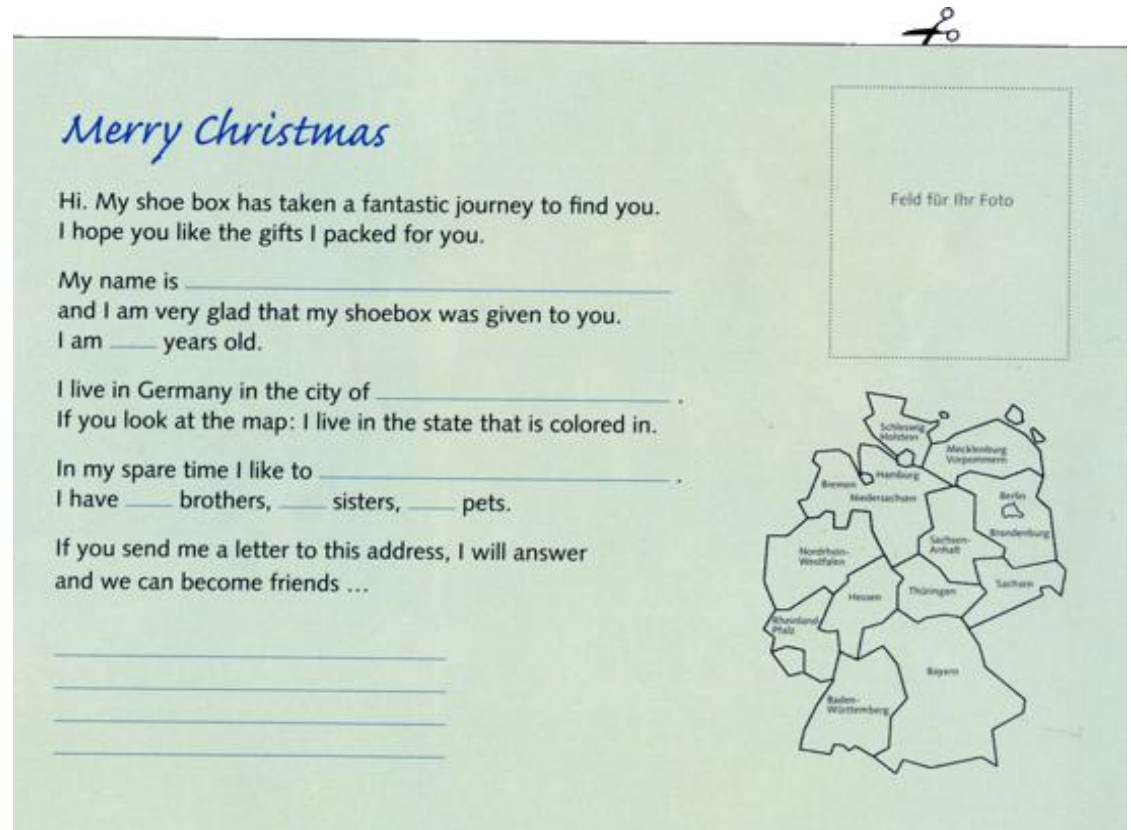 Merry Christmas
Hi. My shoe box has taken a fantastic journey to find you.
I hope you like the gifts I packed for you.
My name is
and I am very glad that my shoebox was given to you.
I am ____ years old.
I live in Germany in the city of ____ .
If you look at the map: I live in the state that is colored in.
In my spare time I like to ____ .
I have ____ brothers, ____ sisters, ____ pets.
If you send me a letter to this address, I will answer
and we can become friends ...
Feld für Ihr Foto
Schleswig
Holstein
Mecklenburg
Vorpommern
Hamburg
Bremen
Niedersachsen
Berlin
Brandenburg
Sachsen-
Anhalt
Nordrhein-
Westfalen
Hessen
Thüringen
Sachsen
Rheinland
Pfalz
Bayern
Baden-
Württemberg